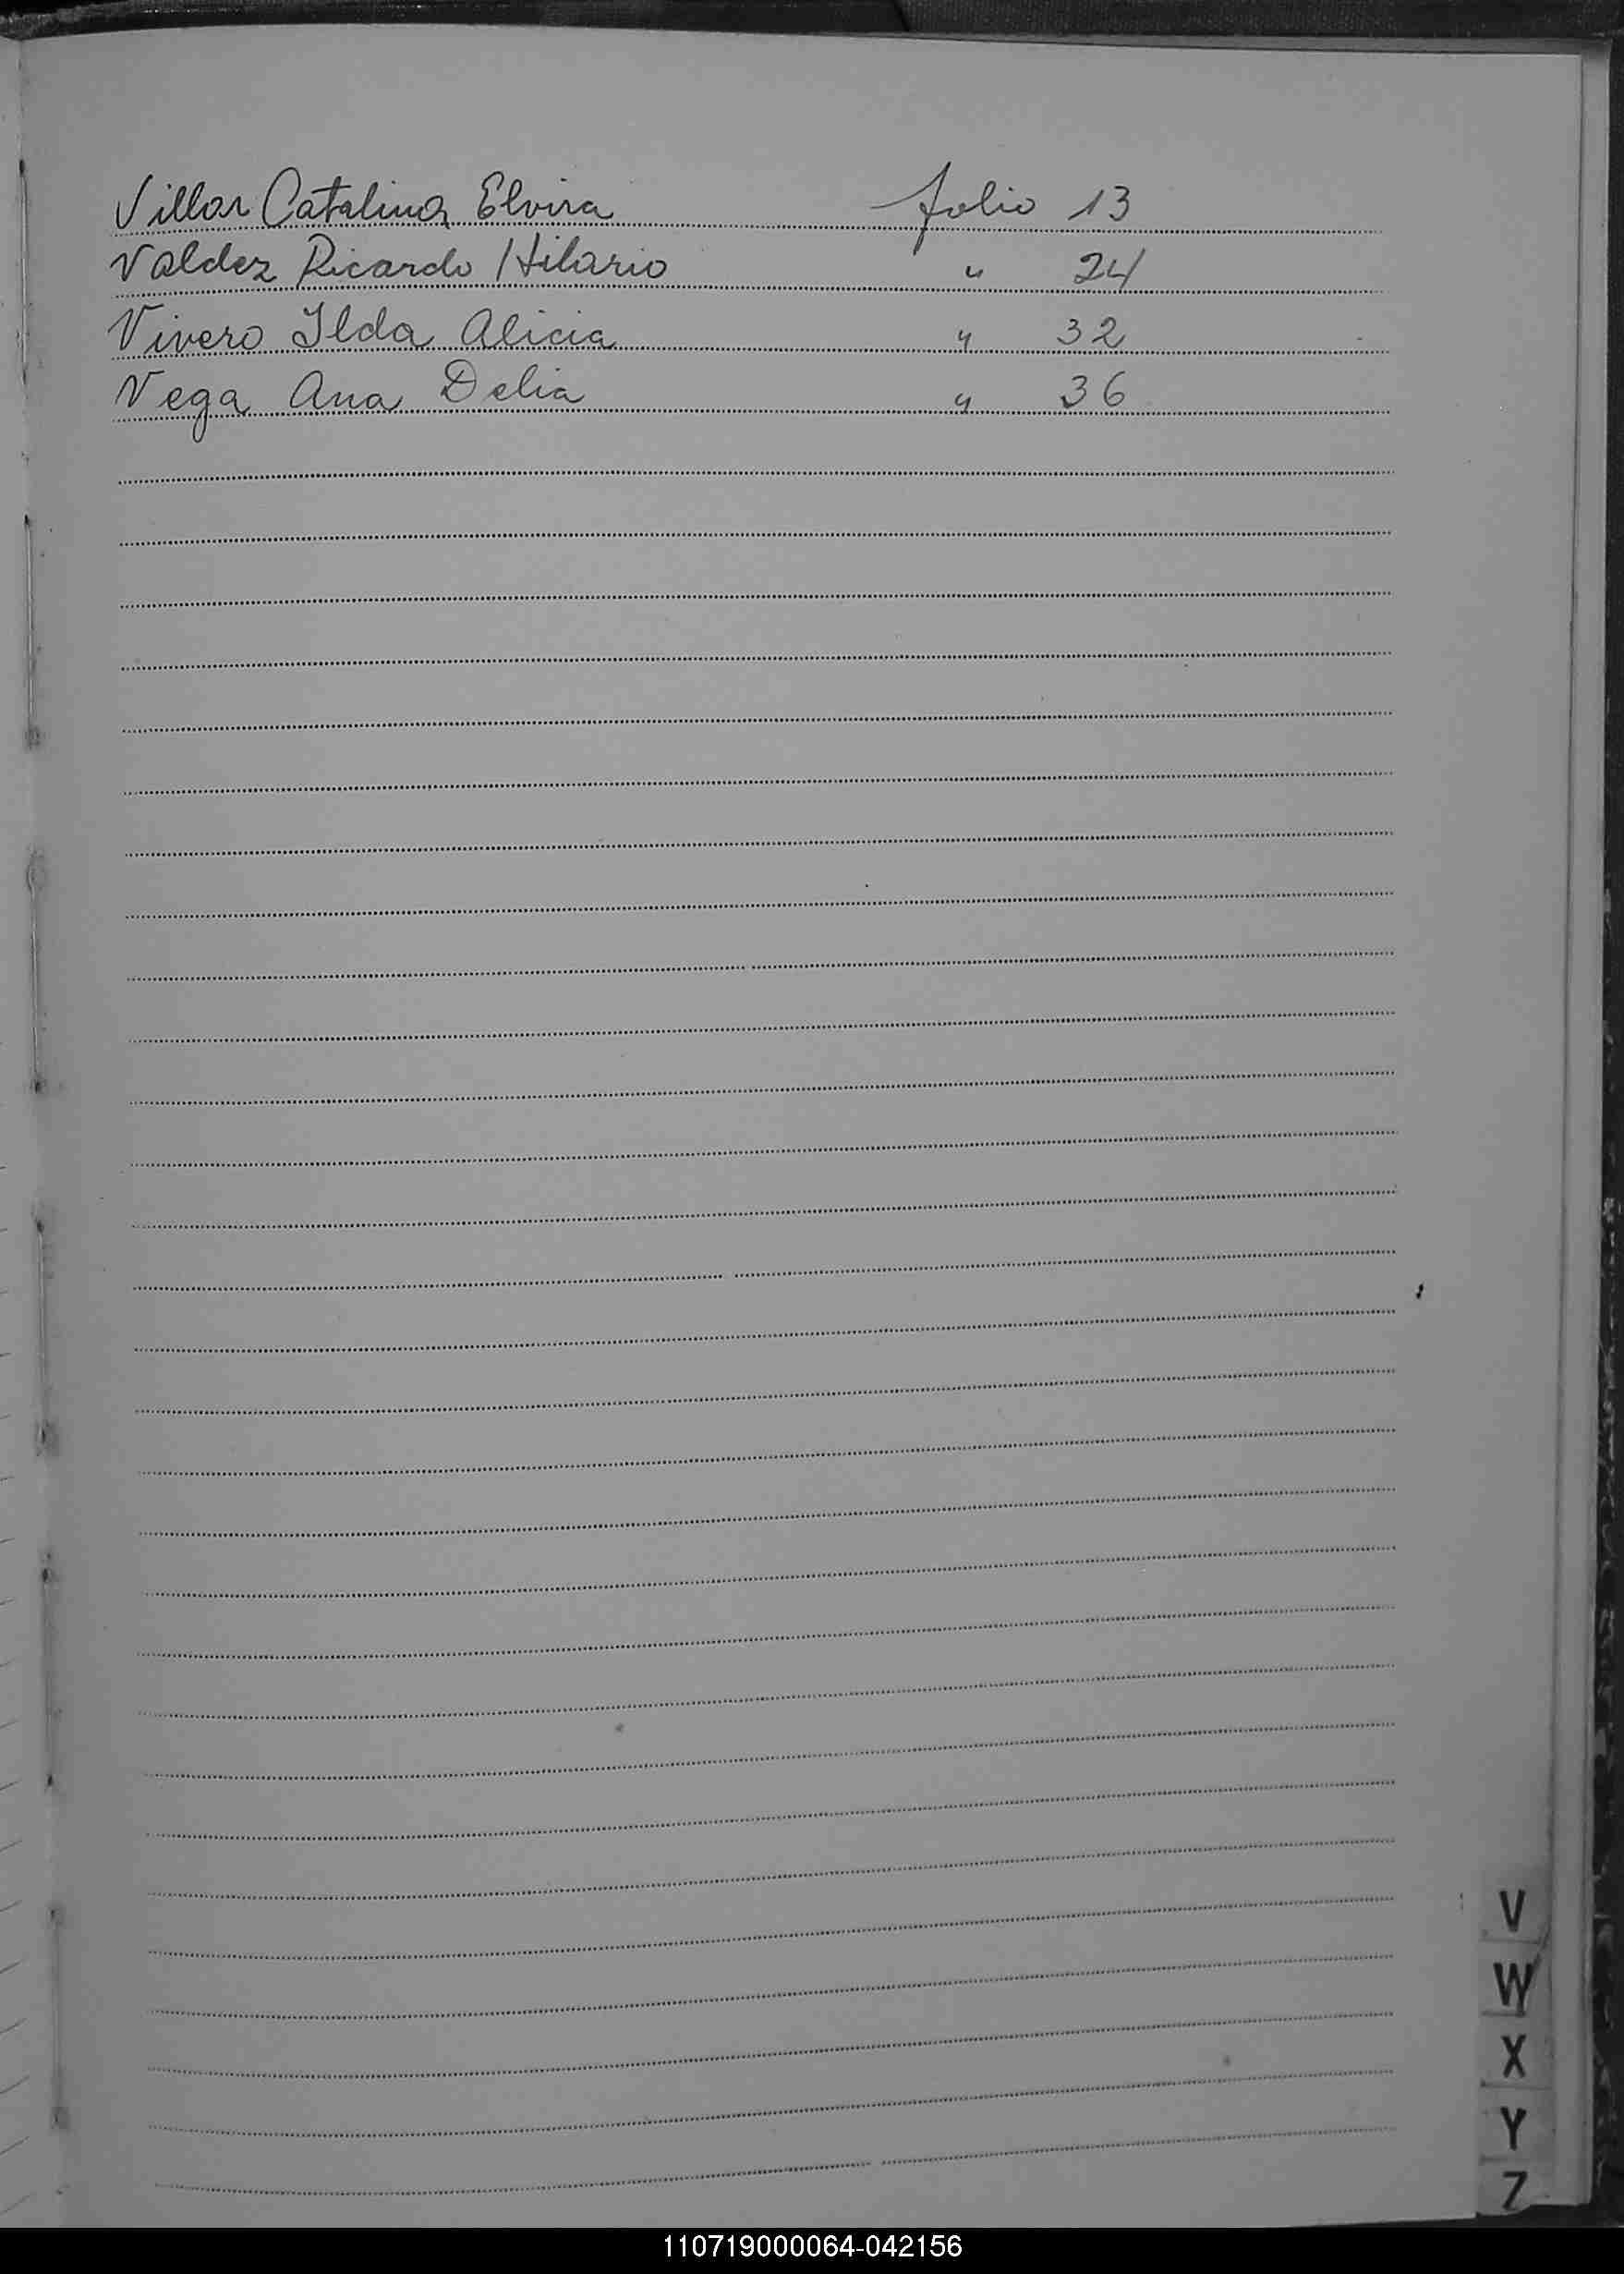 Villar Catalina Elvira folio 13
Valdez Ricardo Hilario " 24
Vivero Ilda Alicia " 32
Vega Ana Delia " 36
V
W
X
Y
Z
110719000064-042156